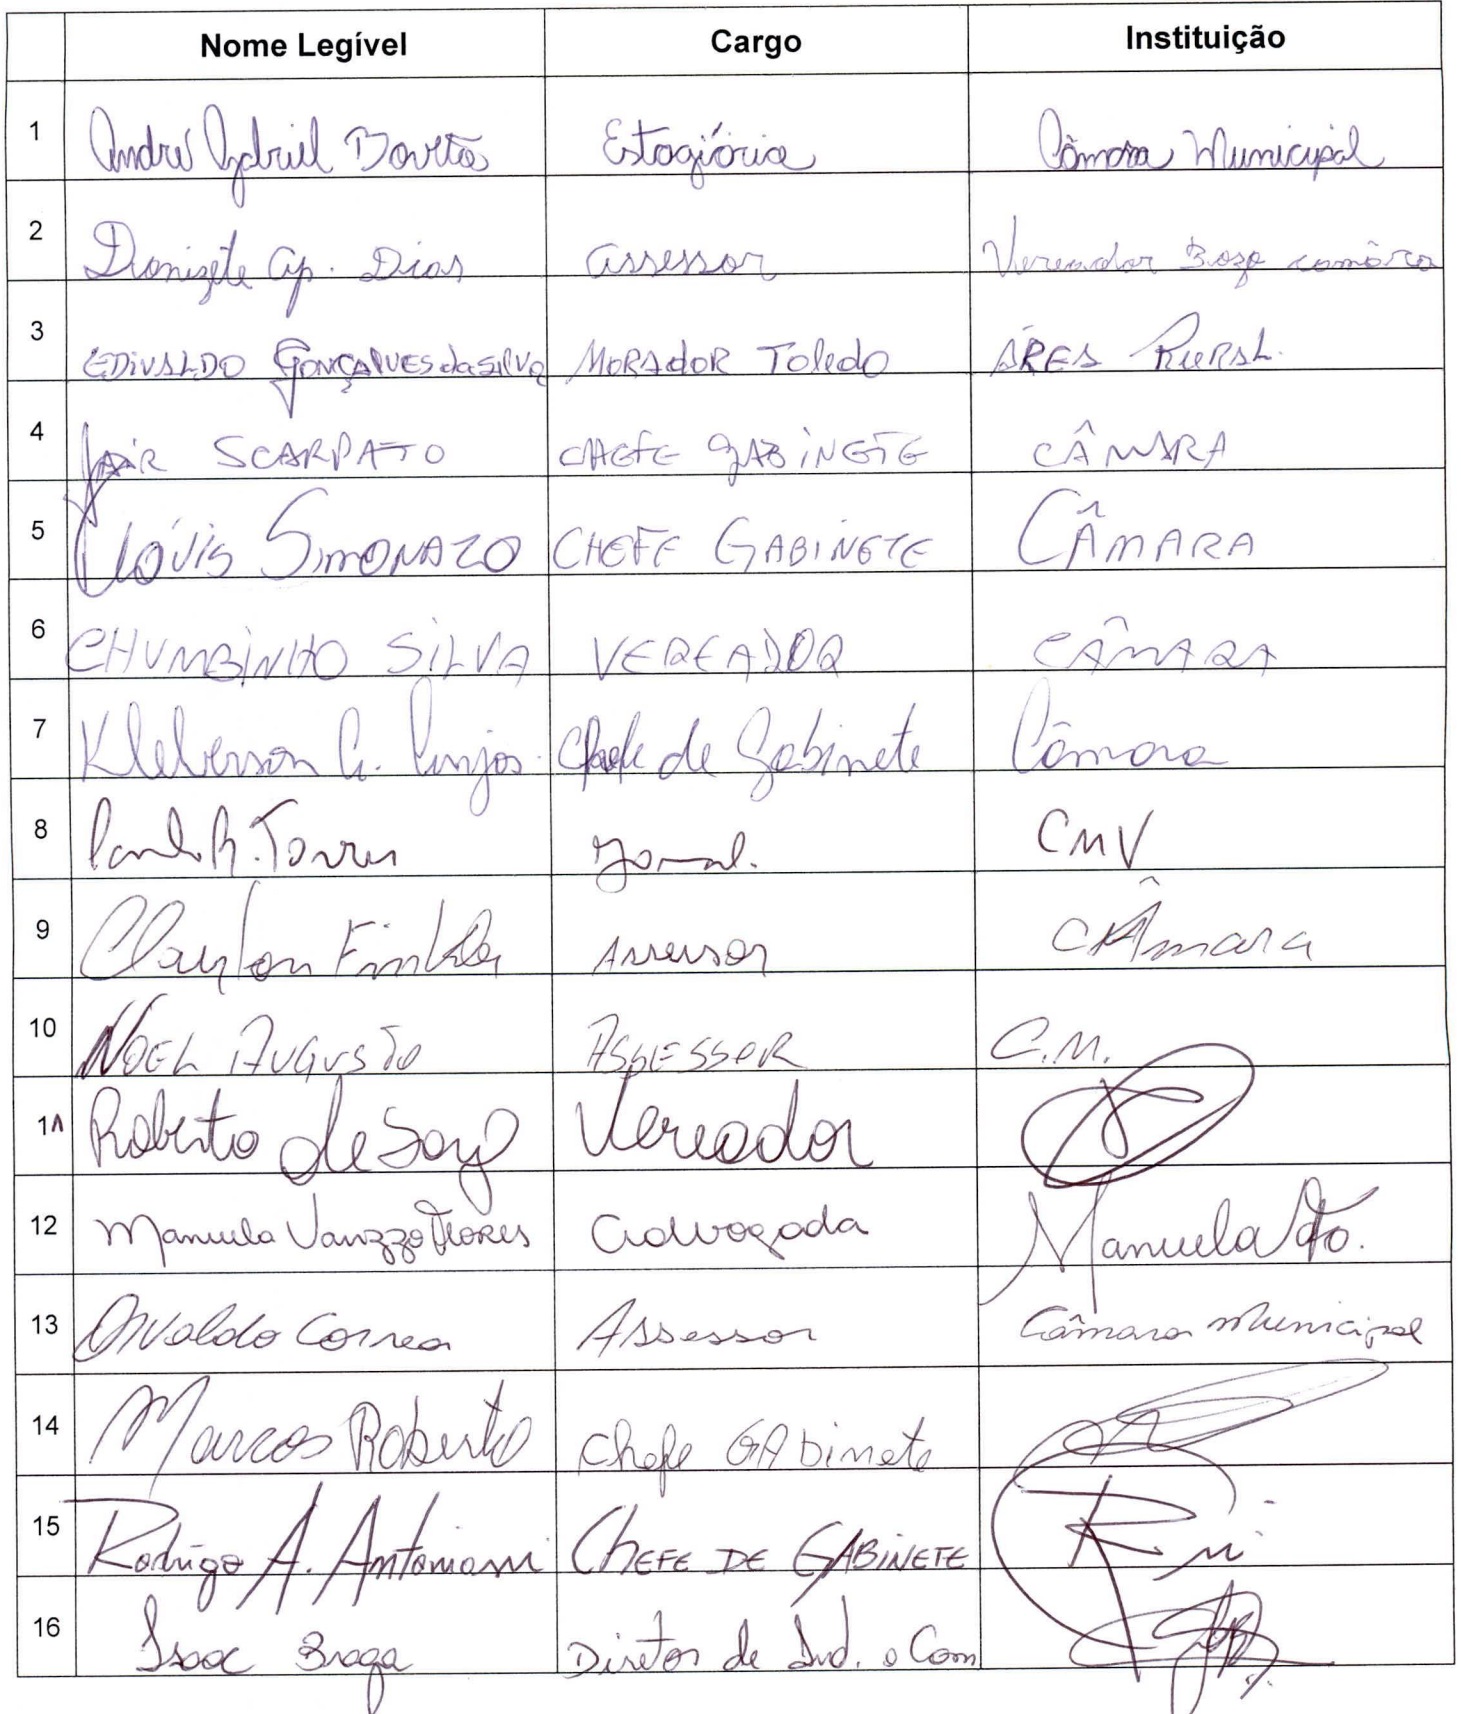 Nome Legível Cargo Instituição
1 André Gabriel Estagiária Câmara Municipal
2 Donizete Ap. Dias assessor Vereador Câmara
3 EDIVALDO GONÇALVES da SILVA MORADOR Toledo ÁREA RURAL
4 JAIR SCARPATO CHEFE GABINETE CÂMARA
5 Clóvis SimONAZO CHEFE GABINETE CÂMARA
6 CHUMBINHO SILVA VEREADOR CÂMARA
7 Kleberson A. Anjos Chefe de Gabinete Câmara
8 R. Torres CMV
9 Clayton Assessor CÂmara
10 NOEL AUGUSTO ASSESSOR C.M.
11 Roberto de Vereador
12 Manuela Vanzzo Flores advogada Manuela
13 Osvaldo Correa Assessor Câmara Municipal
14 Marcos Roberto Chefe GAbinete
15 Rodrigo A. CHEFE DE GABINETE
16 Isaac Braga Diretor de Ind. e Com